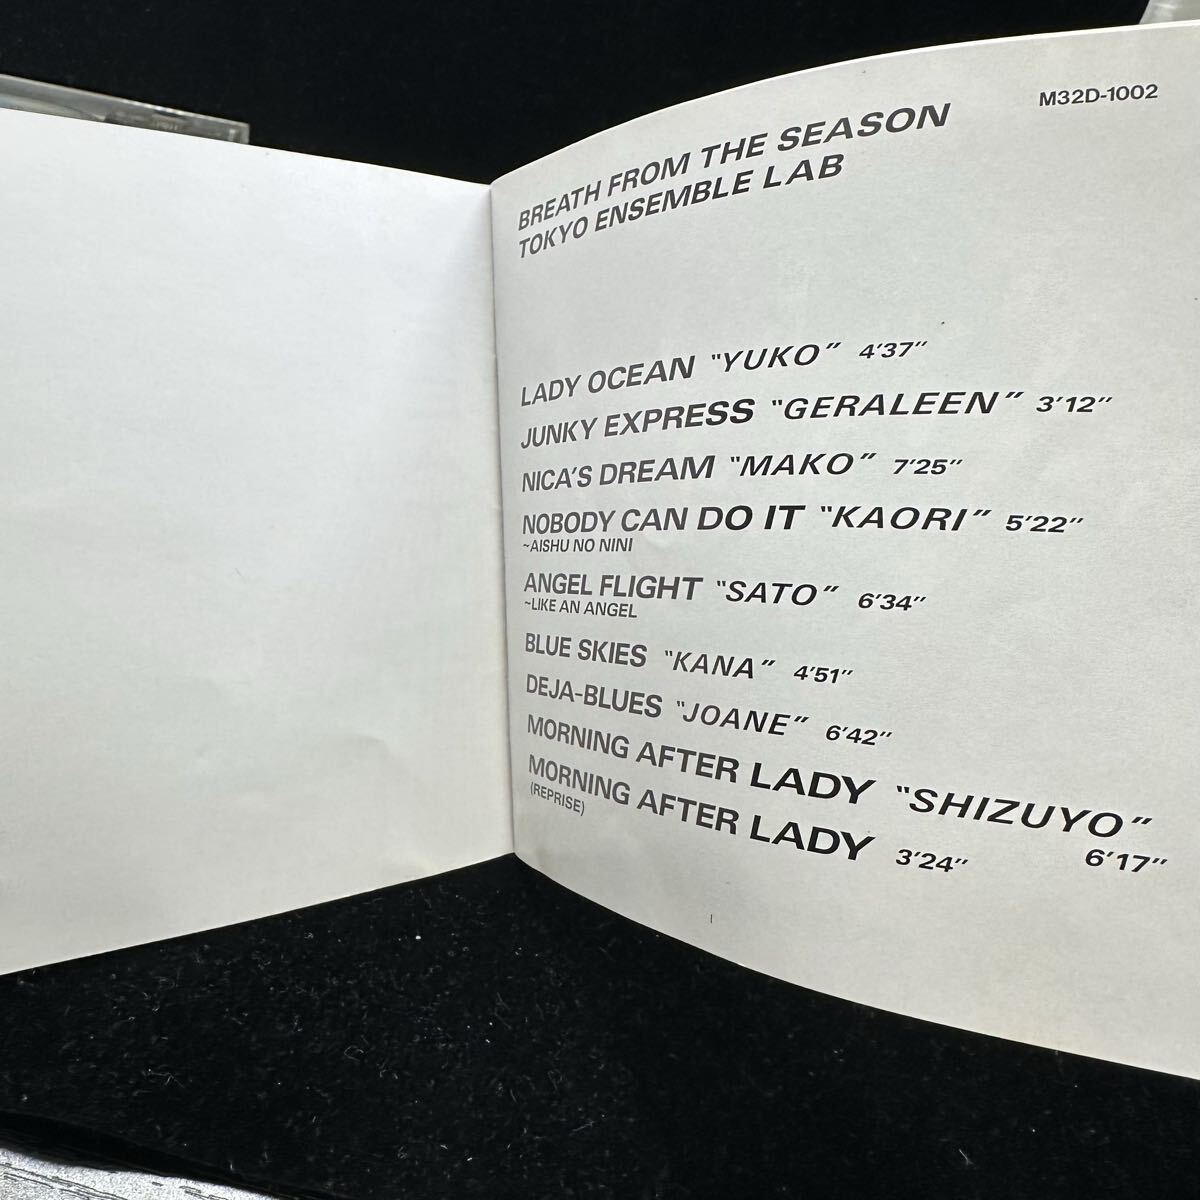 M32D-1002
BREATH FROM THE SEASON
TOKYO ENSEMBLE LAB
LADY OCEAN "YUKO" 4'37"
JUNKY EXPRESS "GERALEEN" 3'12"
NICA'S DREAM "MAKO" 7'25"
NOBODY CAN DO IT "KAORI" 5'22"
~AISHU NO NINI
ANGEL FLIGHT "SATO" 6'34"
~LIKE AN ANGEL
BLUE SKIES "KANA" 4'51"
DEJA-BLUES "JOANE" 6'42"
MORNING AFTER LADY "SHIZUYO" 6'17"
MORNING AFTER LADY 3'24"
(REPRISE)